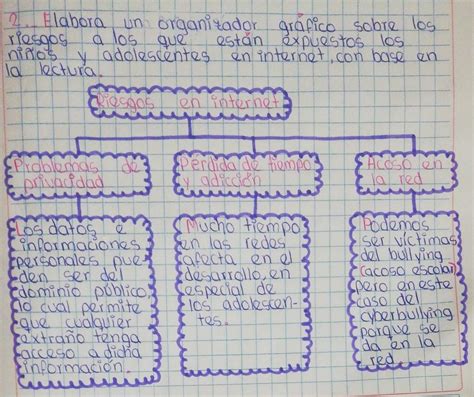 2. Elabora un organizador gráfico sobre los
riesgos a los que están expuestos los
niños y adolescentes en internet, con base en
la lectura.
Riesgos en internet
Problemas de
privacidad
Pérdida de tiempo
y adicción
Acoso en
la red
Los datos e
informaciones
personales pue-
den ser del
dominio público,
lo cual permite
que cualquier
extraño tenga
acceso a dicha
información.
Mucho tiempo
en las redes
afecta en el
desarrollo, en
especial de
los adolescen-
tes.
Podemos
ser víctimas
del bullying
(acoso escolar)
pero en este
caso del
cyberbullying
porque se
da en la
red.